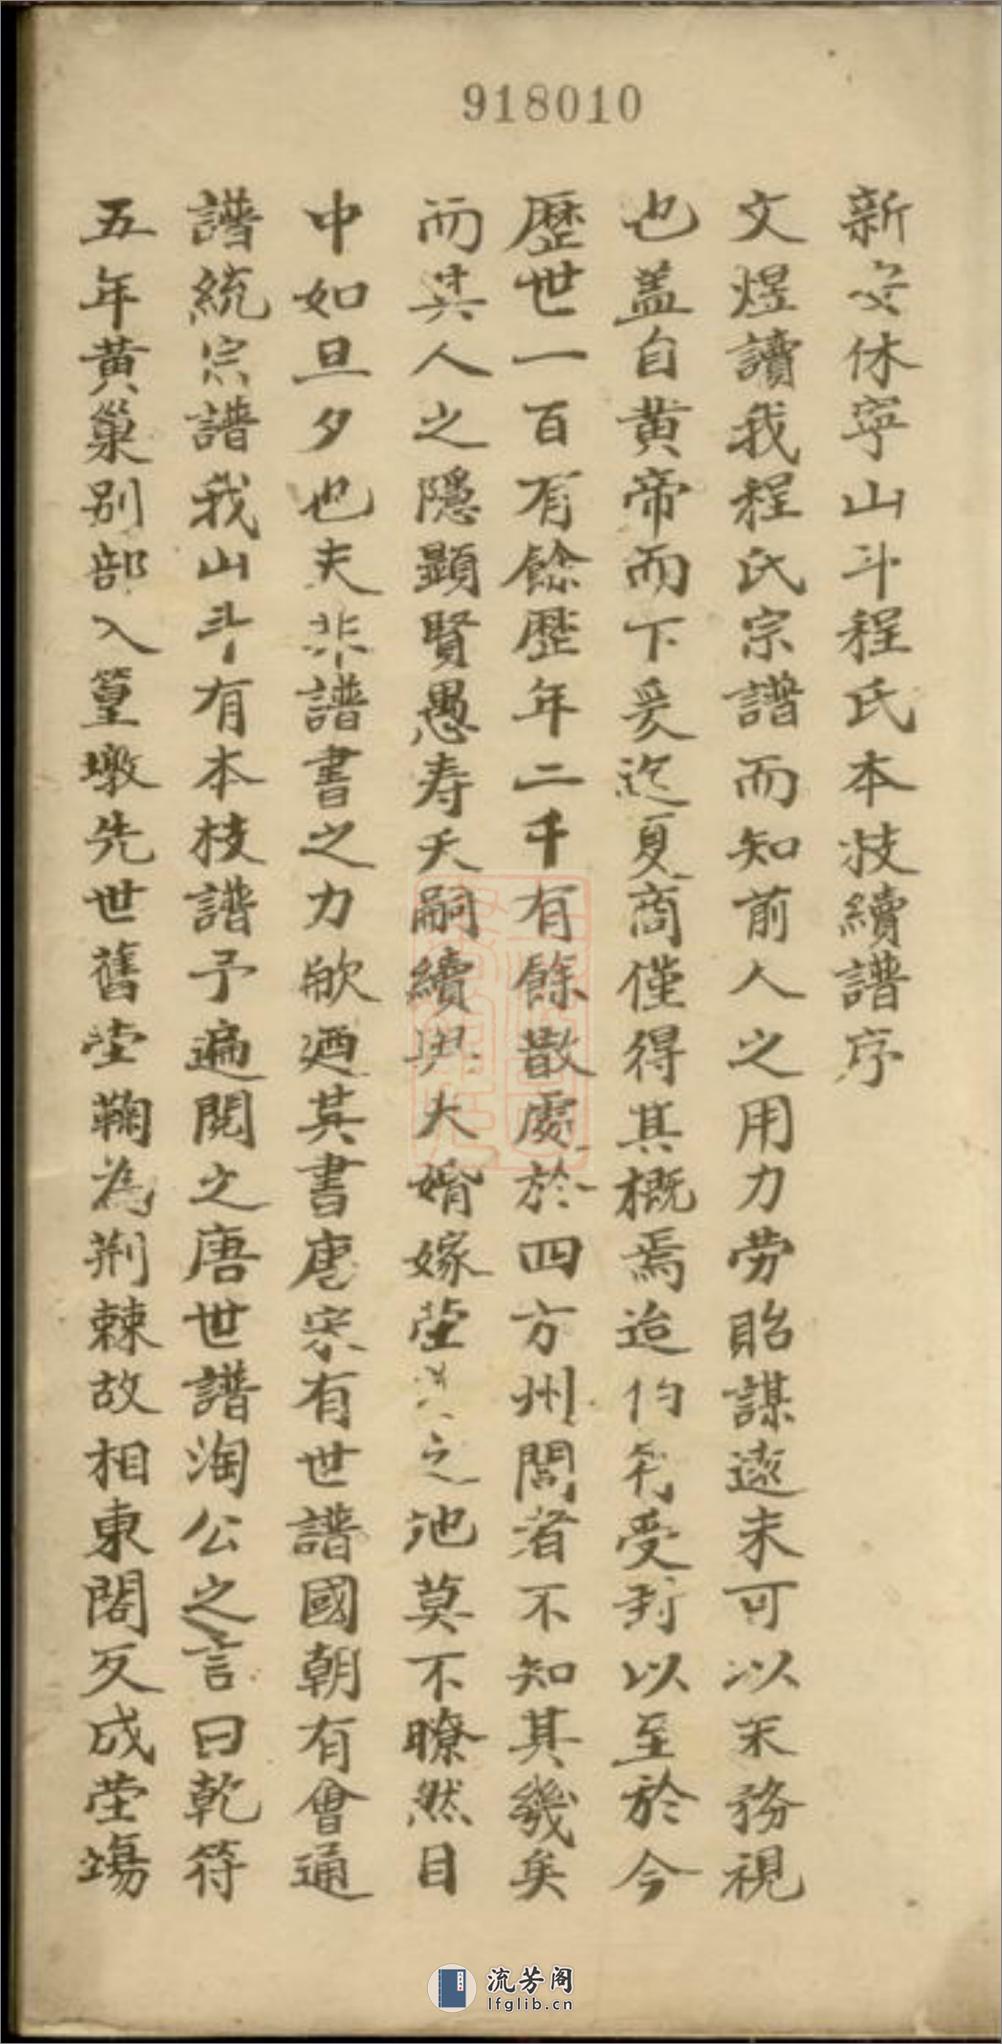 918010
新安休寧山斗程氏本枝續譜序
文煜讀我程氏宗譜而知前人之用力勞貽謀遠未可以末務視
也蓋自黄帝而下爰迄夏商僅得其概焉迨伯符受封以至於今
歷世一百有餘歷年二千有餘散處於四方州閭者不知其幾矣
而其人之隱顯賢愚寿夭嗣續與夫婚嫁塋之地莫不瞭然目
中如旦夕也夫非譜書之力歟廼其書唐宋有世譜國朝有會通
譜統宗譜我山斗有本枝譜予遍閱之唐世譜淘公之言曰乾符
五年黄巢别部入篁墩先世舊塋鞠為荆棘故相東閣又成塋塲
流芳阁
lfglib.cn